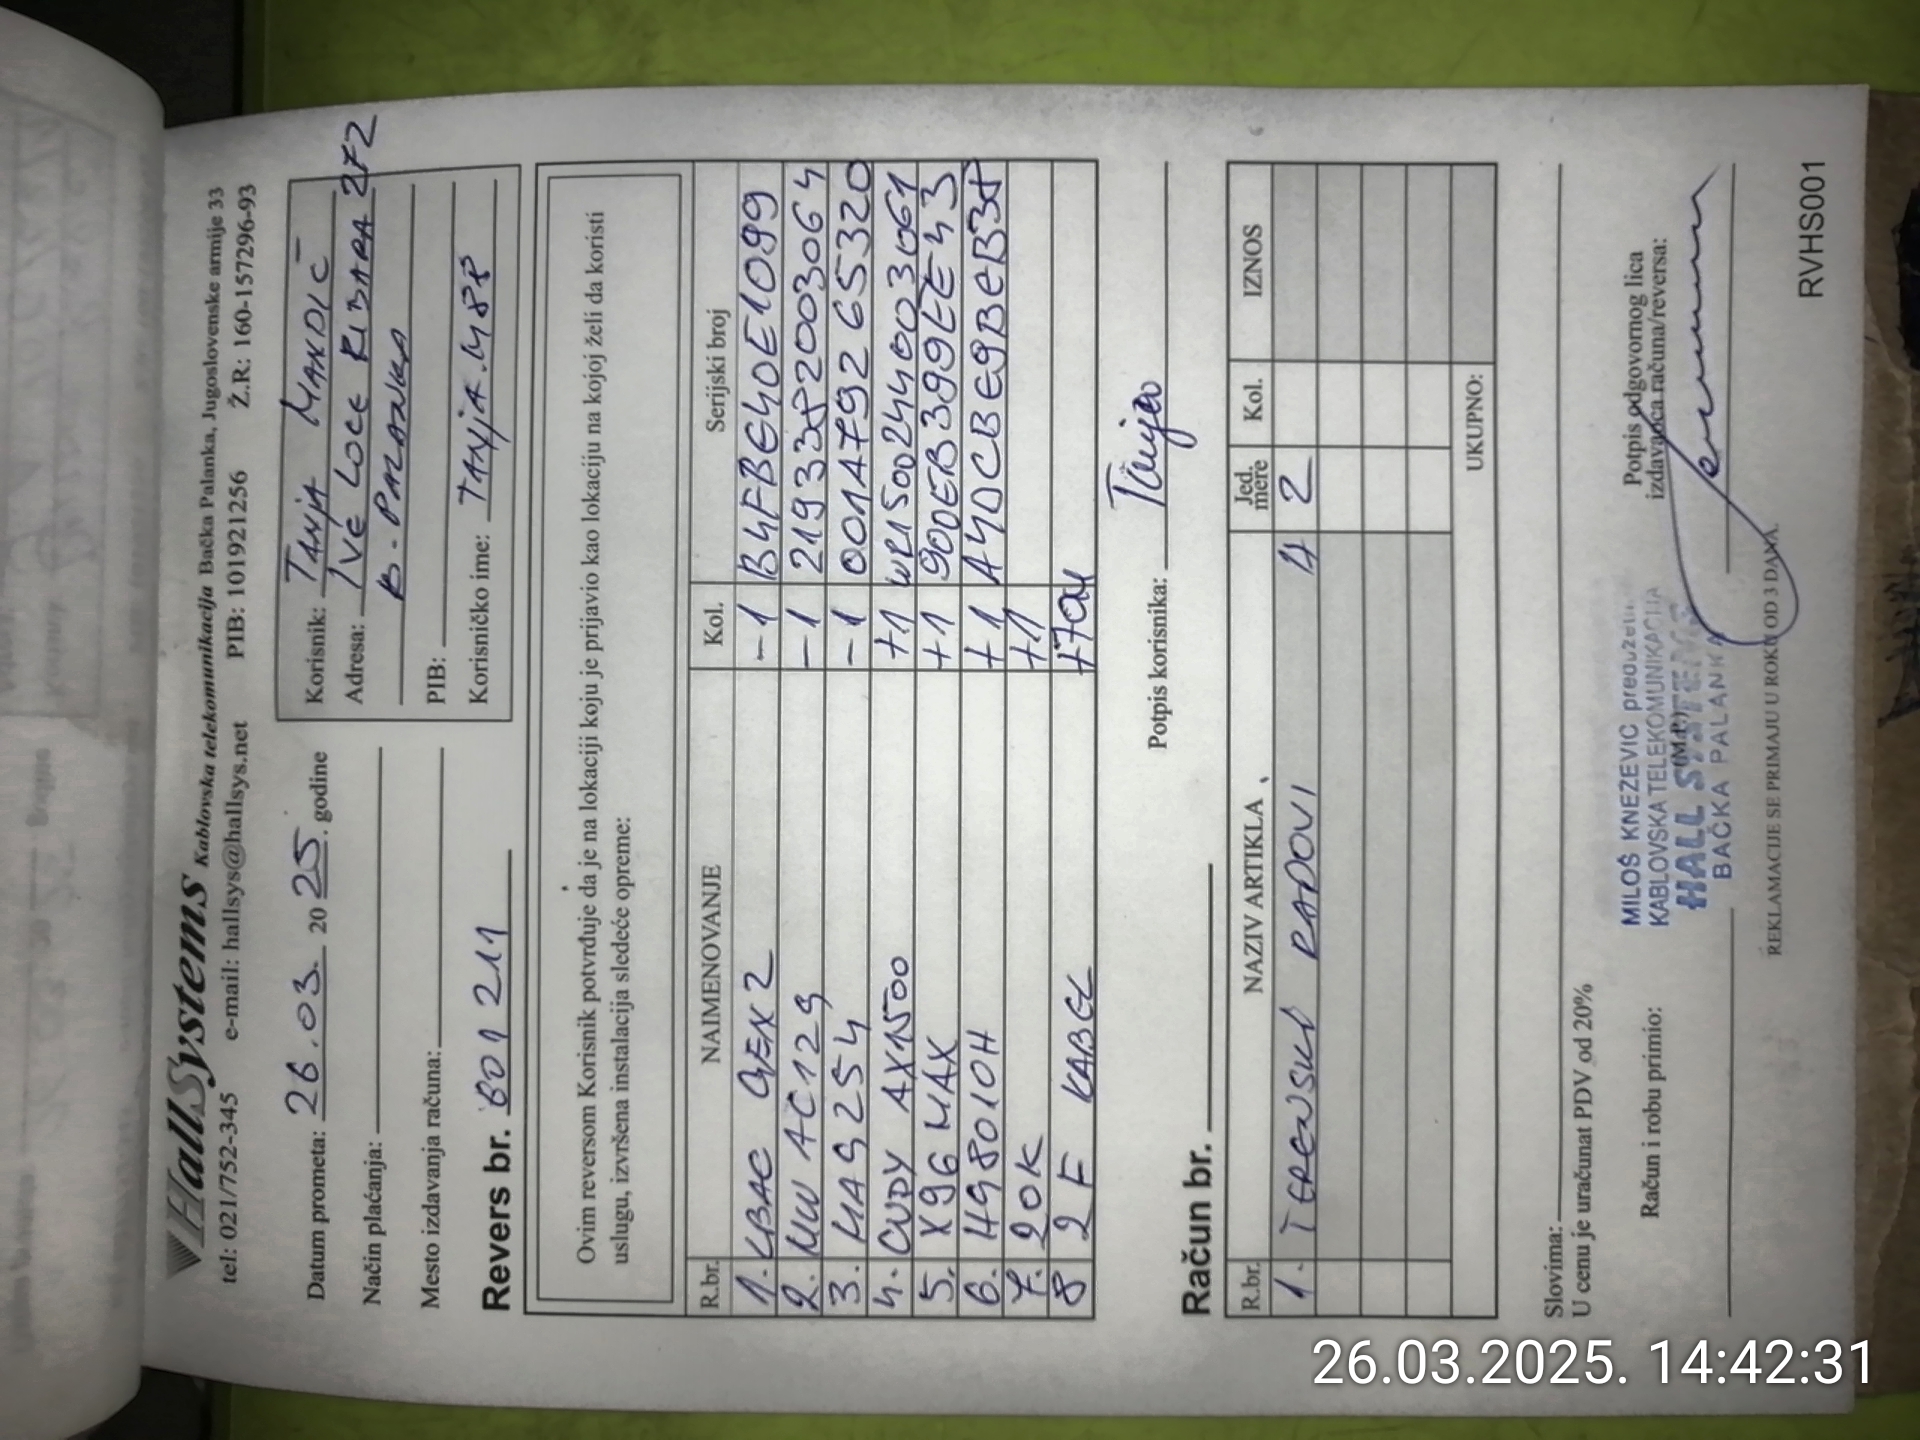 HallSystems Kablovska telekomunikacija Bačka Palanka, Jugoslovenske armije 33
tel: 021/752-345 e-mail: hallsys@hallsys.net PIB: 101921256 Ž.R.: 160-157296-93
Datum prometa: 26.03. 2025. godine
Način plaćanja:
Mesto izdavanja računa:
Revers br. 601211
Korisnik: TANJA MANDIĆ
Adresa: IVE LOLE RIBARA 272
B. PALANKA
PIB:
Korisničko ime: TANJA.M88
Ovim reversom Korisnik potvrđuje da je na lokaciji koju je prijavio kao lokaciju na kojoj želi da koristi
uslugu, izvršena instalacija sledeće opreme:
R.br. NAIMENOVANJE Kol. Serijski broj
1. LBAC GEN2 -1 B4FBE40E1099
2. MW AC129 -1 2193382003064
3. MAG254 -1 001A79265320
4. CUDY AX1500 +1 WR1500244003061
5. X96 MAX +1 900EB3999EE43
6. H98010H +1 A40CBE9BEB38
7. 20K +1
8 2F KABEL +70M
Potpis korisnika: Tanja
Račun br.
R.br. NAZIV ARTIKLA Jed. mere Kol. IZNOS
1. TERENSKI RADOVI 4 2
UKUPNO:
Slovima:
U cenu je uračunat PDV od 20%
Račun i robu primio:
MILOŠ KNEZEVIĆ preduzetnik
KABLOVSKA TELEKOMUNIKACIJA
HALL SYSTEMS
(M.P.)
BAČKA PALANKA
Potpis odgovornog lica
izdavaoca računa/reversa:
REKLAMACIJE SE PRIMAJU U ROKU OD 3 DANA.
RVHS001
26.03.2025. 14:42:31